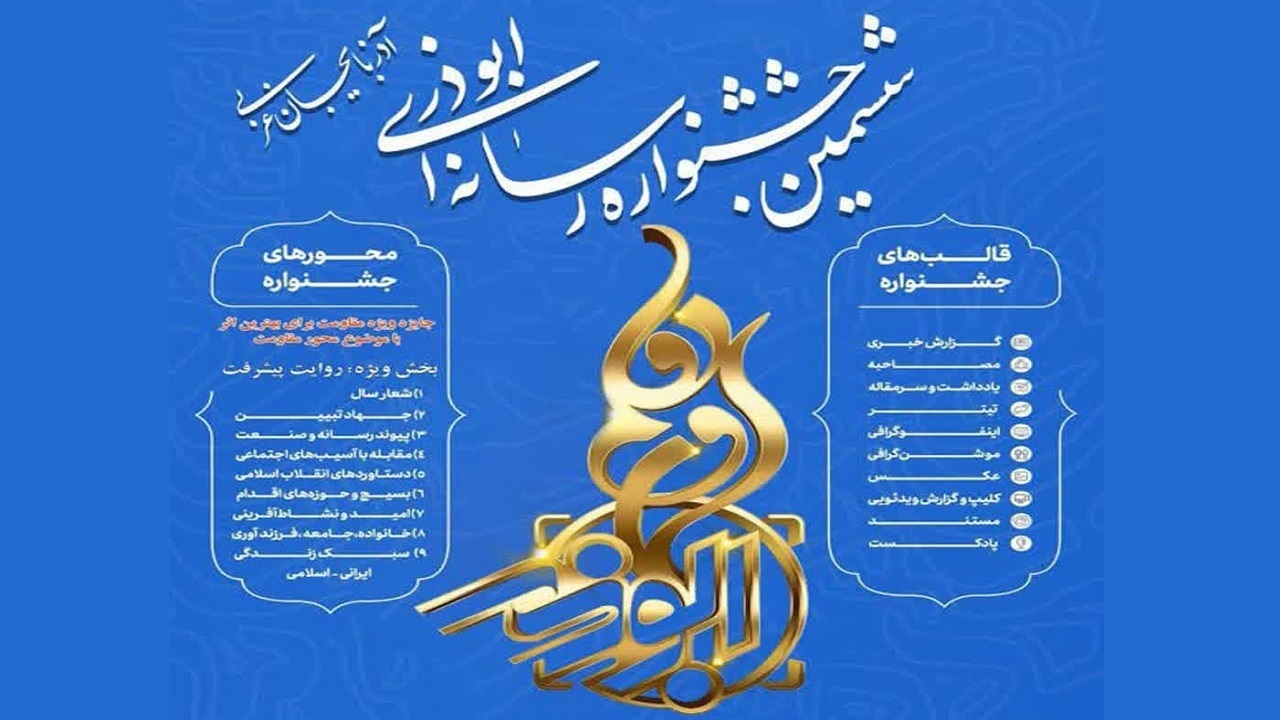 ششمین جشنواره رسانه ای ابوذر
آذربایجان غربی
قالب‌های
جشنواره
گزارش خبری
مصاحبه
یادداشت و سرمقاله
تیتر
اینفوگرافی
موشن‌گرافی
عکس
کلیپ و گزارش ویدئویی
مستند
پادکست
محورهای
جشنواره
جایزه ویژه مقاومت برای بهترین اثر
با موضوع محور مقاومت
بخش ویژه: روایت پیشرفت
۱) شعار سال
۲) جهاد تبیین
۳) پیوند رسانه و صنعت
۴) مقابله با آسیب‌های اجتماعی
۵) دستاوردهای انقلاب اسلامی
۶) بسیج و حوزه‌های اقدام
۷) امید و نشاط‌آفرینی
۸) خانواده، جامعه، فرزند آوری
۹) سبک زندگی
ایرانی - اسلامی
ابوذر